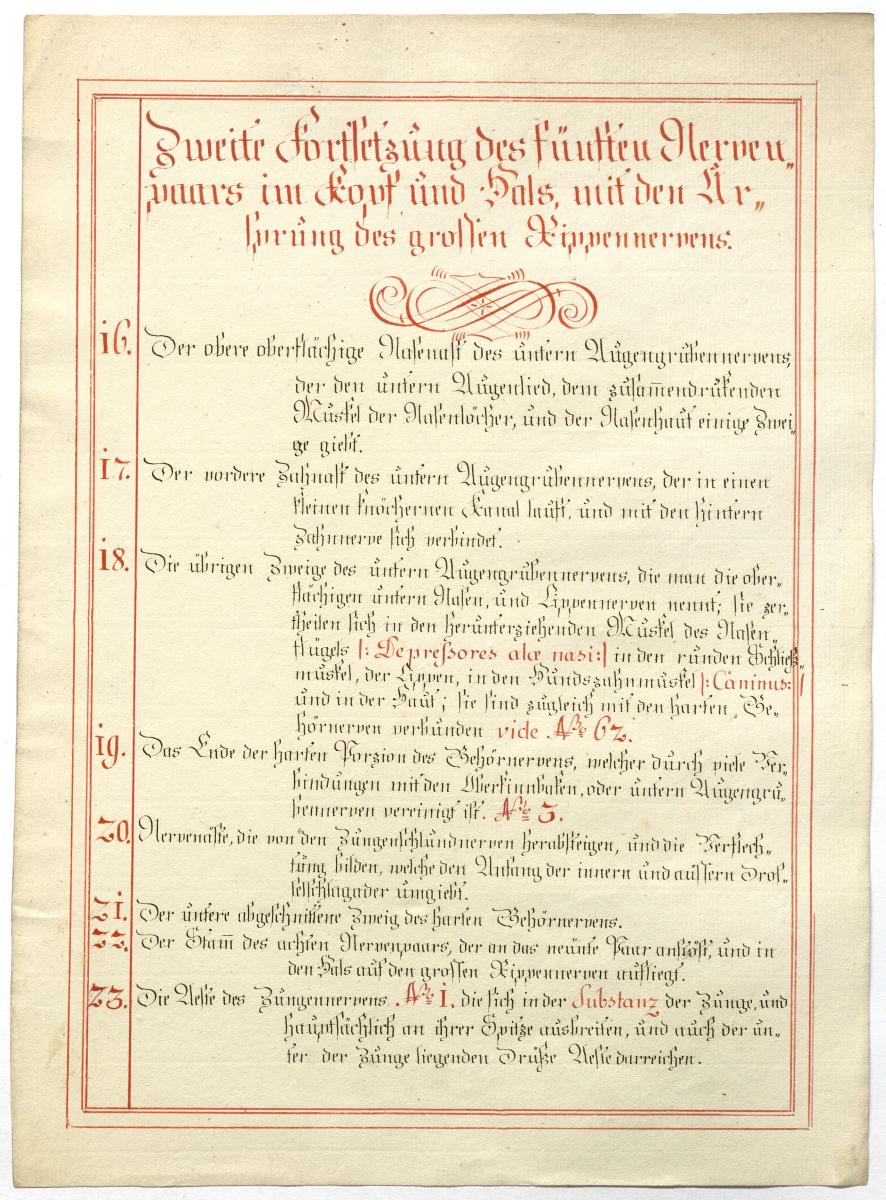 Zweite Fortsetzung des fünften Nerven„
paars im Kopf und Hals, mit den Ur„
sprung des grossen Rippennervens.
16. Der obere oberflächige Nasenast des untern Augengrubennervens,
der den untern Augenlied, dem zusam̅endrukenden
Muskel der Nasenlöcher, und der Nasenhaut einige Zwei
ge giebt.
17. Der vordere Zahnast des untern Augengrubennervens, der in einen
kleinen knöchernen Kanal lauft, und mit den hintern
Zahnnerve sich verbindet.
18. Die übrigen Zweige des untern Augengrubennervens, die man die ober„
flächigen untern Nasen, und Lippennerven nennt; sie zer„
theilen sich in den herunterziehenden Muskel des Nasen„
flügels |: Depreßores alæ nasi :| in den runden Schließ„
muskel, der Lippen, in den Hundszahnmuskel |: Caninus: |
und in der Haut; sie sind zugleich mit den harten Ge„
hörnerven verbunden vide Nro 62.
19. Das Ende der harten Porzion des Gehörnervens, welcher durch viele Ver„
bindungen mit den Oberkinnbaken, oder untern Augengru„
bennerven vereinigt ist. Nro 3.
20. Nervenäste, die von den Zungenschlundnerven herabsteigen, und die Verflech„
tung bilden, welche den Anfang der innern und äussern Dros„
selschlagader umgiebt.
21. Der untere abgeschnittene Zweig des harten Gehörnervens.
22. Der Stam̅ des achten Nervenpaars, der an das neünte Paar anstöst, und in
den Hals auf den grossen Rippennerven aufliegt.
23. Die Aeste des Zungennervens Nro 1. die sich in der Substanz der Zunge, und
hauptsächlich an ihrer Spitze ausbreiten, und auch der un„
ter der Zunge liegenden Drüße Aeste darreichen.